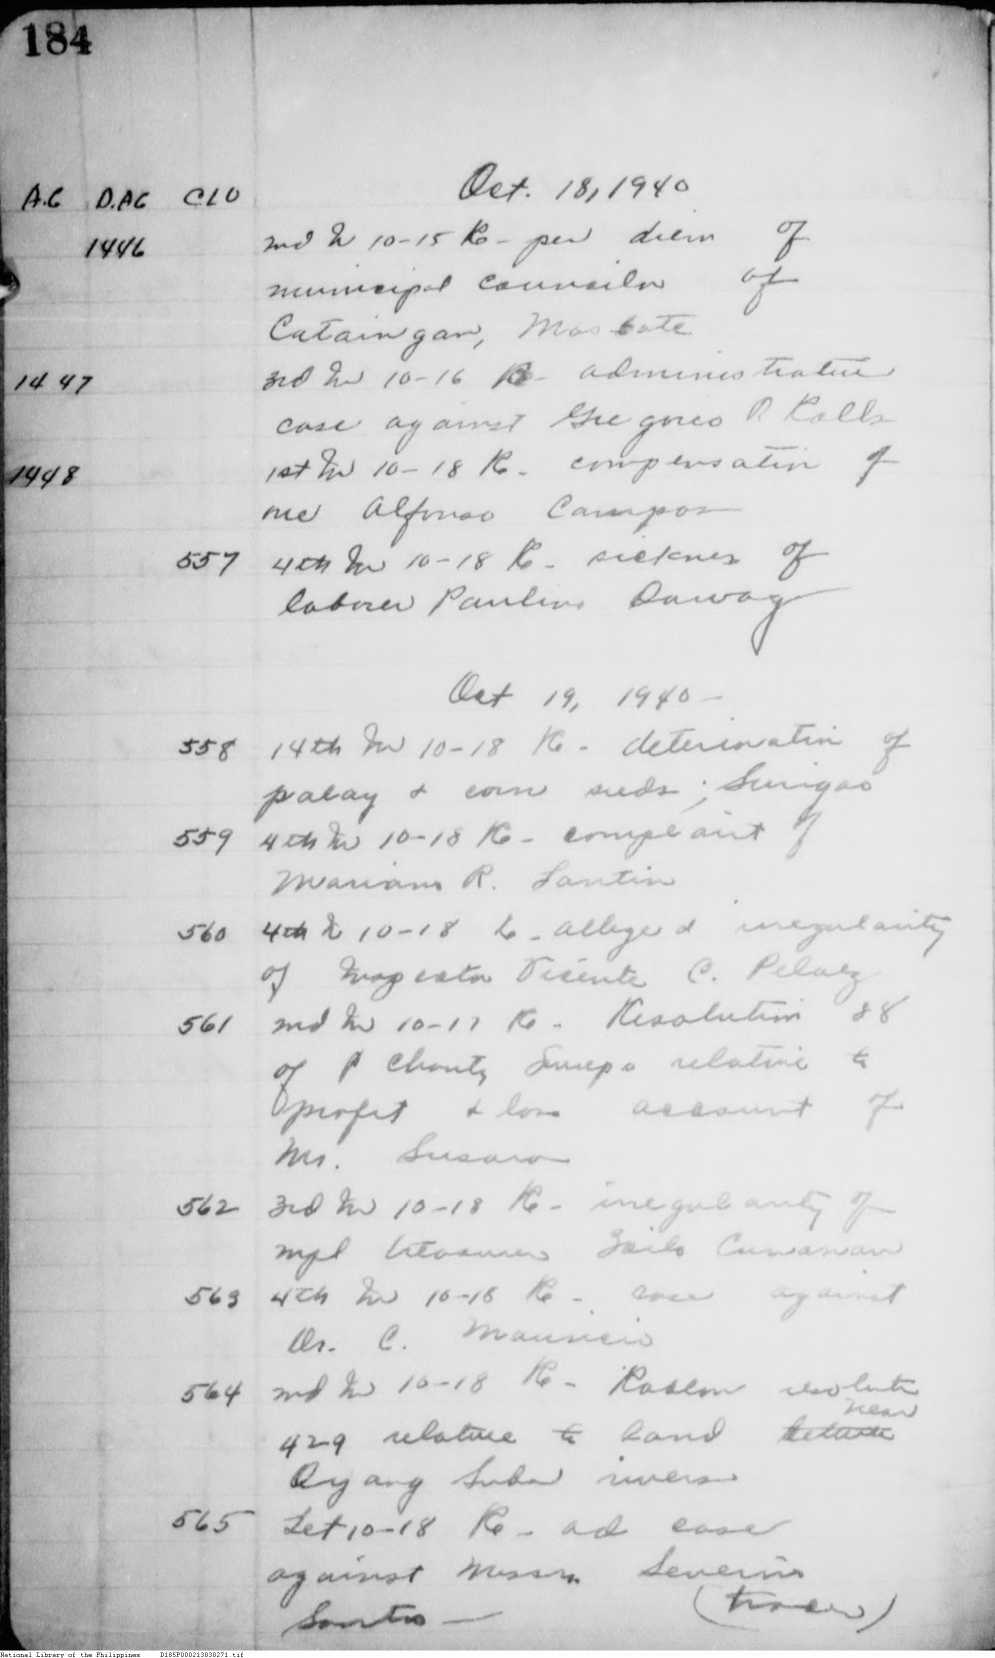 184
A.G D.AG CLO Oct. 18, 1940
1446 2nd In 10-15 Re- per diem of
municipal councilor of
Cataingan, Masbate
1447 3rd In 10-16 Re- administrative
case against Gregorio R
1448 1st In 10-18 Re- compensation of
one Alfonso Campos
557 4th In 10-18 Re- sickness of
laborer Paulino Dawag
Oct 19, 1940-
558 14th In 10-18 Re- deterioration of
palay & corn seeds; Surigao
559 4th In 10-18 Re- complaint of
Mariano R. Santin
560 4th In 10-18 Re- alleged irregularity
of Inspector Vicente C. Pelaez
561 2nd In 10-17 Re- Resolution 28
of relative to
profit & loss account of
Mr. Susano
562 3rd In 10-18 Re- irregularity of
mpl treasurer Cunanan
563 4th In 10-18 Re- case against
Dr. C. Mauricio
564 2nd In 10-18 Re- resolution
near
429 relative to land
rivers
565 Let 10-18 Re- ad case
against Messrs. Severino
Santos -
National Library of the Philippines D185P000213030271.tif